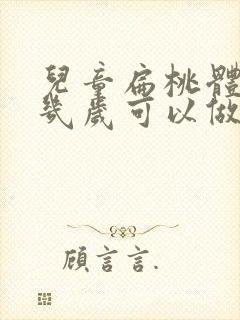 兒童扁桃體
幾歲可以做
顧言言.